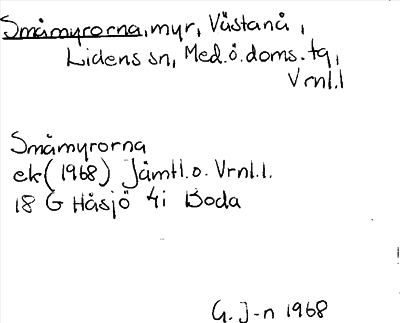 Småmyrorna, myr, Västanå,
Lidens sn, Med.ö.doms.tg,
Vrnl.l
Småmyrorna
ek (1968) Jämtl. o. Vrnl.l.
18 G Håsjö 4i Boda
G. J-n 1968